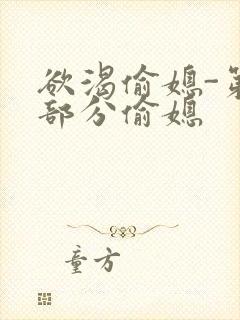 欲渴偷媳-第
部分偷媳
童方